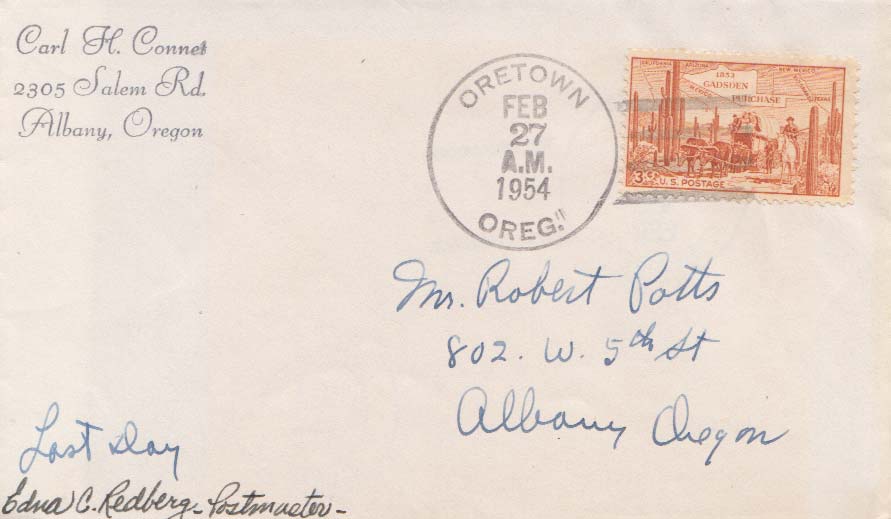 Carl H. Connet
2305 Salem Rd.
Albany, Oregon
ORETOWN
FEB
27
A.M.
1954
OREG.
CALIFORNIA ARIZONA NEW MEXICO
1853
GADSDEN
PURCHASE
MEXICO
TEXAS
3¢ U.S. POSTAGE
Mr. Robert Potts
802. W. 5th St
Albany Oregon
Last Day
Edna C. Redberg - Postmaster -